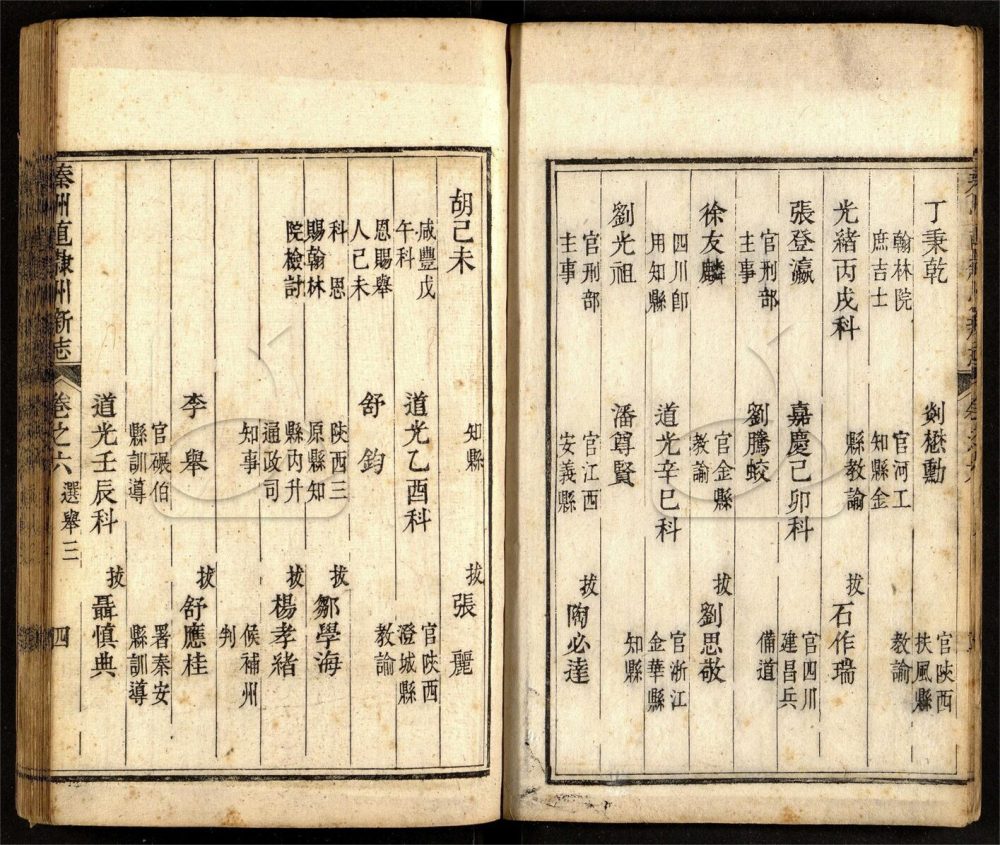 丁秉乾
翰林院
庶吉士
光緒丙戌科
張登瀛
官刑部
主事
徐友麟
四川卽
用知縣
劉光祖
官刑部
主事
剡懋勳
官河工
知縣金
縣教諭
嘉慶己卯科
劉騰蛟
官金縣
教諭
道光辛巳科
潘尊賢
官江西
安義縣
官陝西
扶風縣
教諭
拔 石作瑞
官四川
建昌兵
備道
拔 劉思敬
官浙江
金華縣
知縣
拔 陶必達
胡己未
咸豐戊
午科
恩賜舉
人己未
科 恩
賜翰林
院檢討
知縣
道光乙酉科
舒鈞
陝西三
原縣知
縣內升
通政司
知事
李舉
官碾伯
縣訓導
道光壬辰科
拔 張麗
官陝西
澄城縣
教諭
拔 鄒學海
拔 楊孝緒
候補州
判
拔 舒應桂
署秦安
縣訓導
拔 聶慎典
秦州直隸州新志 卷之六 選舉三 四